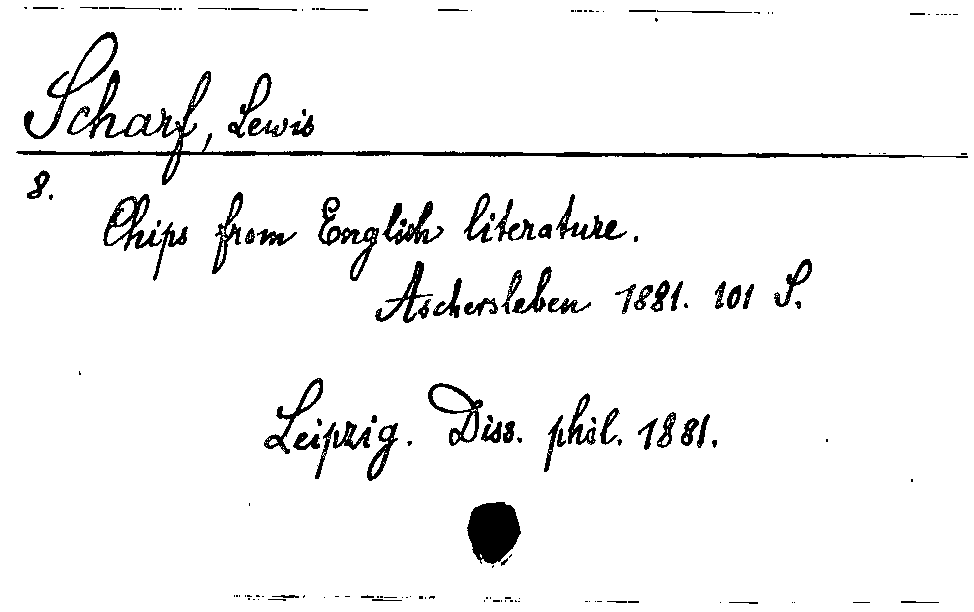 Scharf, Lewis
8.
Chips from English literature.
Aschersleben 1881. 101 S.
Leipzig. Diss. phil. 1881.